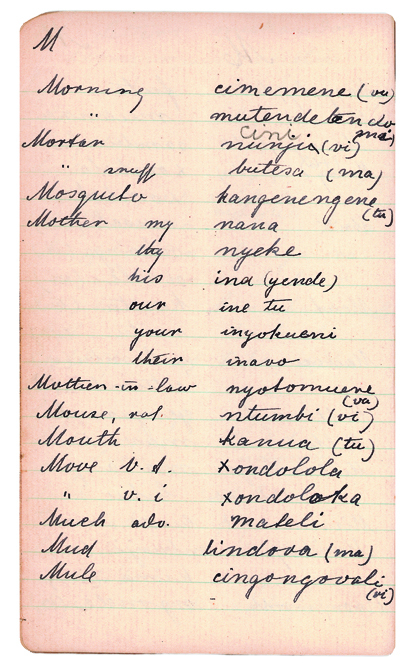 M
Morning cimemene (vu)
" mutendetendo (mi)
cini
Mortar nunjia (vi)
" snuff butesa (ma)
Mosquito kangenengene (tu)
Mother my nana
thy nyeke
his ina (yende)
our ine tu
your inyokueni
their inavo
Mother-in-law nyatomuene (va)
Mouse, rat. ntumbi (vi)
Mouth kanua (tu)
Move v.t. xondolola
" v. i xondoloka
Much adv. mateli
Mud lindova (ma)
Mule cingongovali (vi)